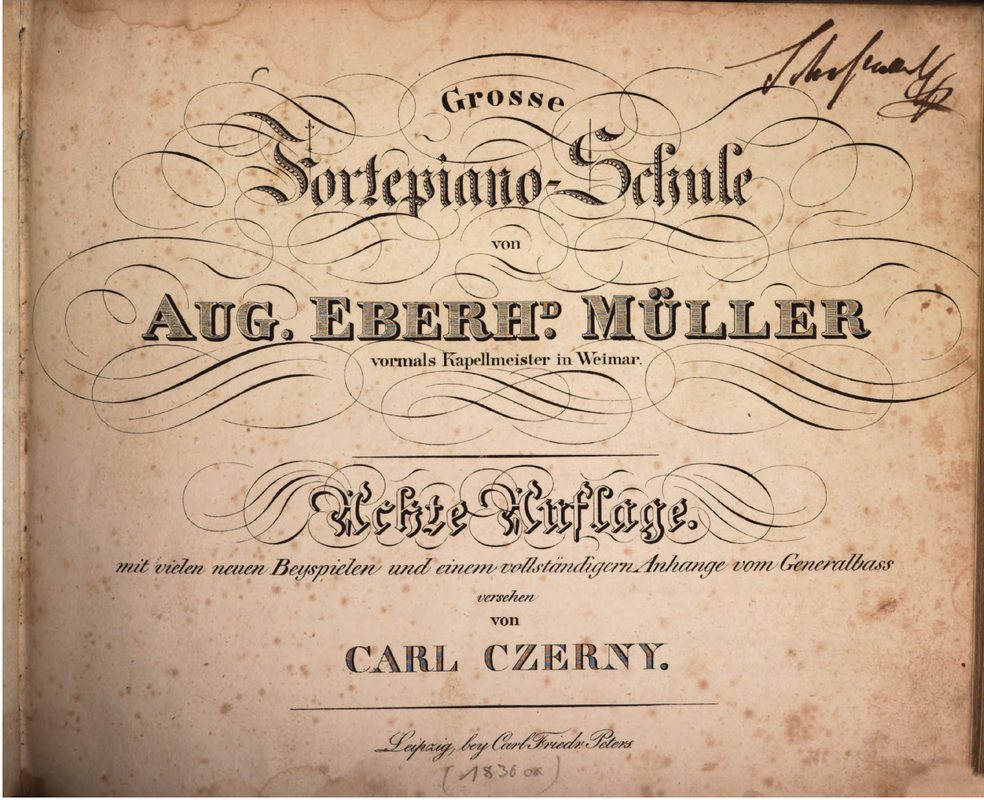 Grosse
Fortepiano-Schule
von
AUG. EBERHD. MÜLLER
vormals Kapellmeister in Weimar.
Achte Auflage.
mit vielen neuen Beyspielen und einem vollständigern Anhange vom Generalbass
versehen
von
CARL CZERNY.
Leipzig, bey Carl Friedr. Peters